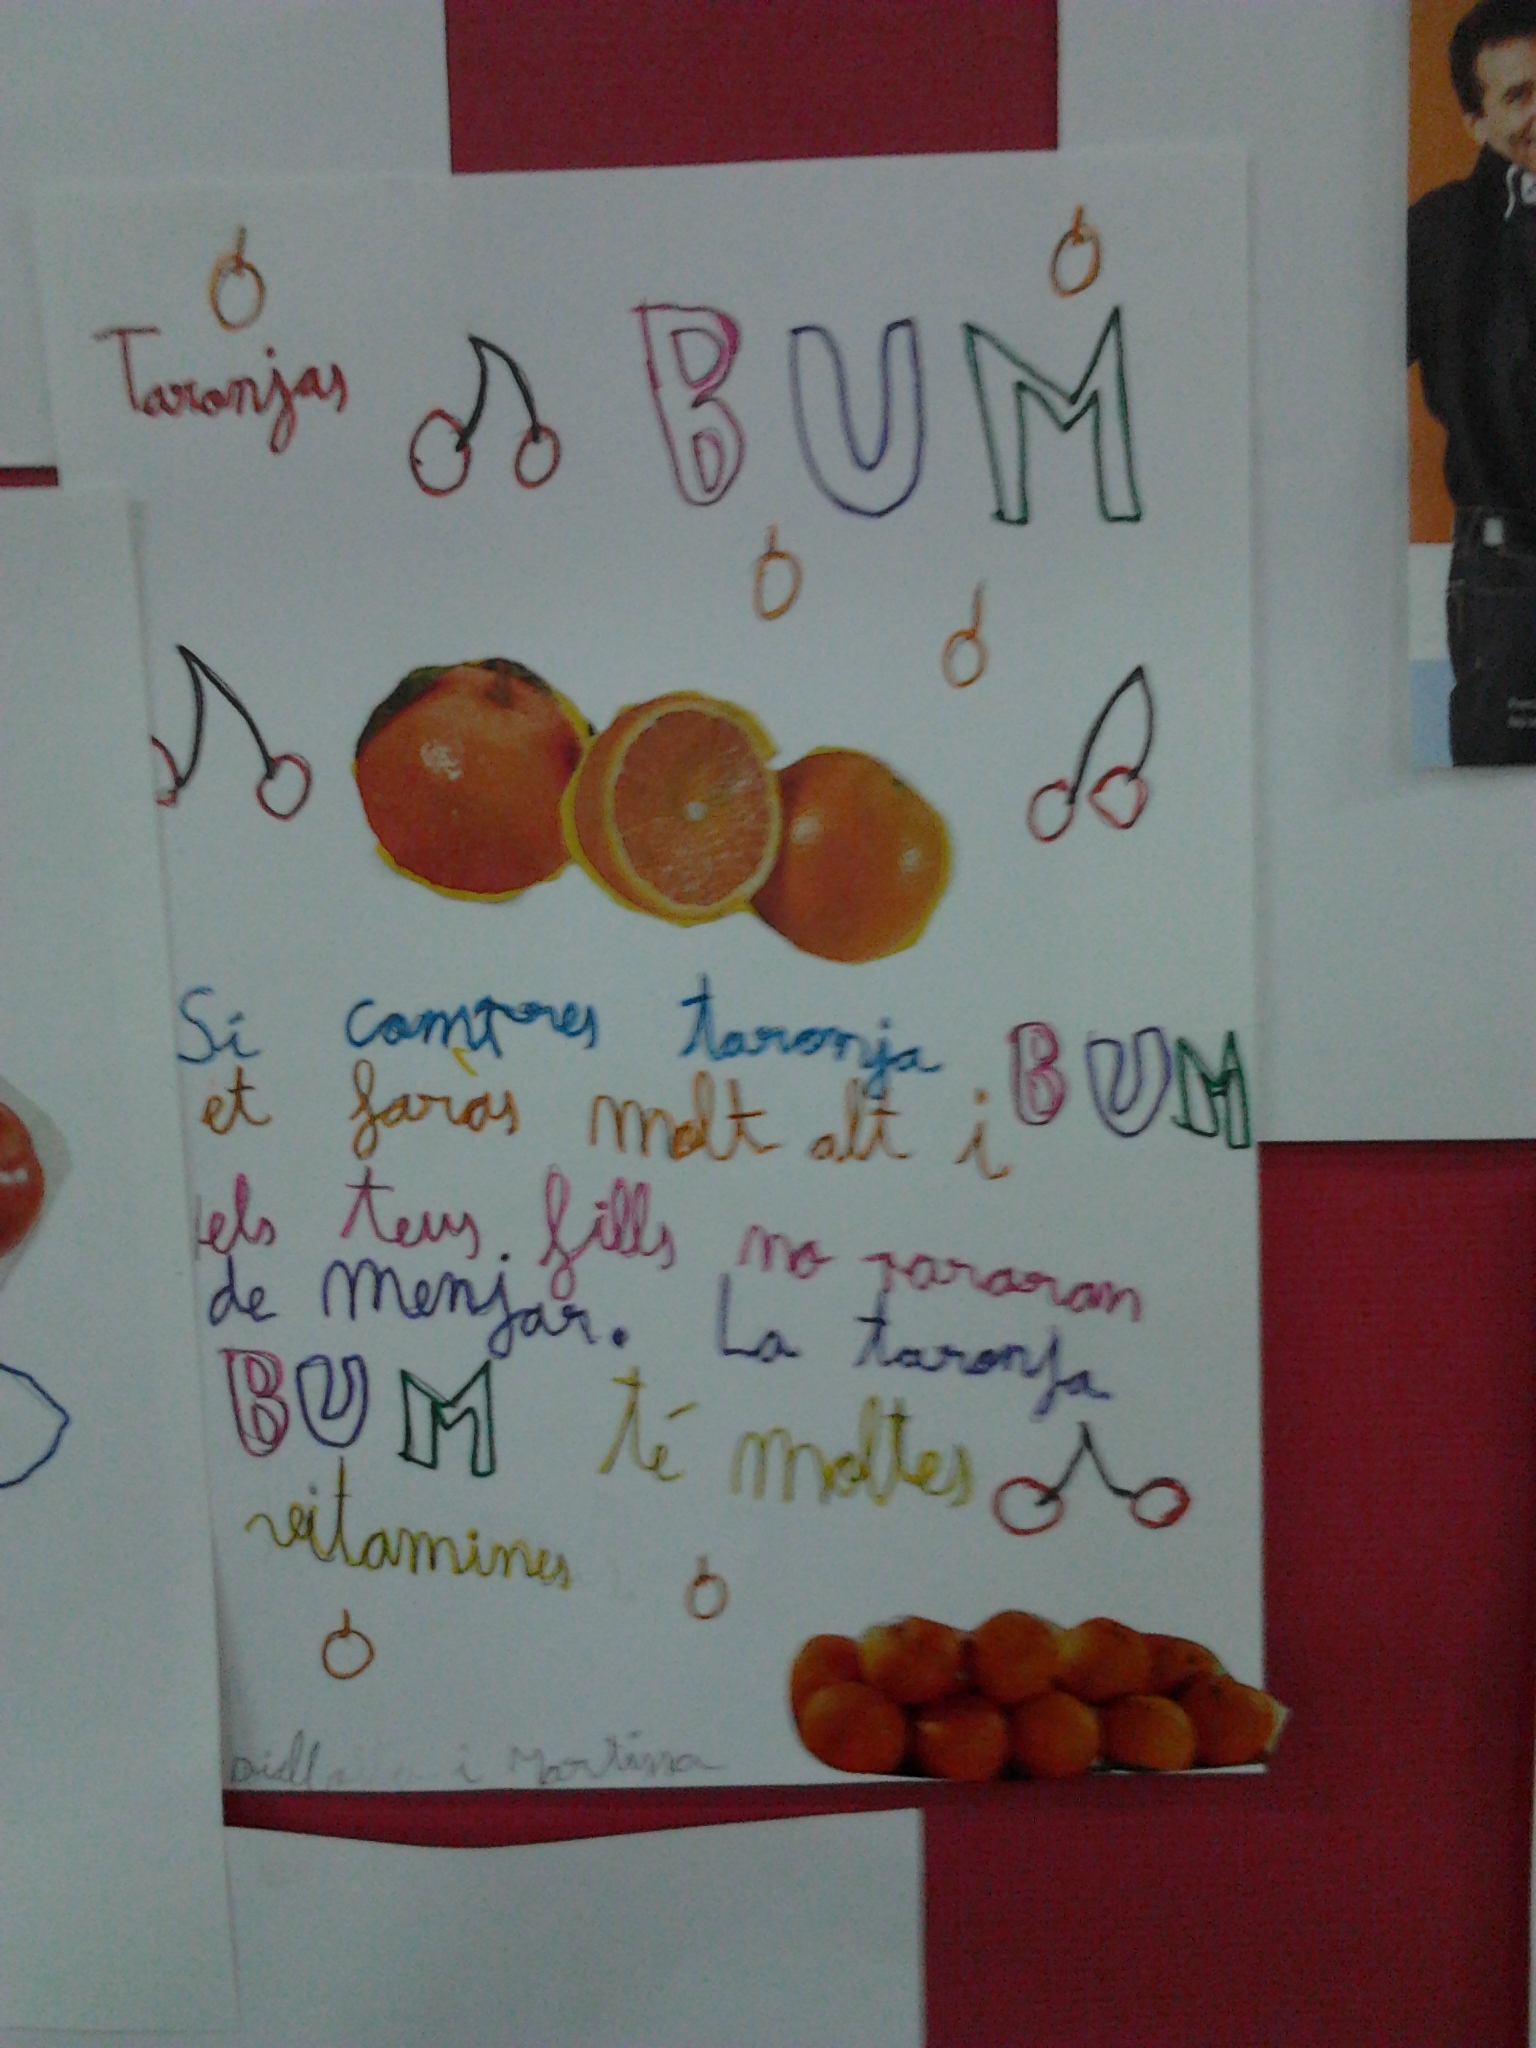 Taronjas BUM
Si comtres taronja BUM
et faràs molt alt i
els teus fills no pararan
de menjar. La taronja
BUM té moltes
vitamines
i Martina